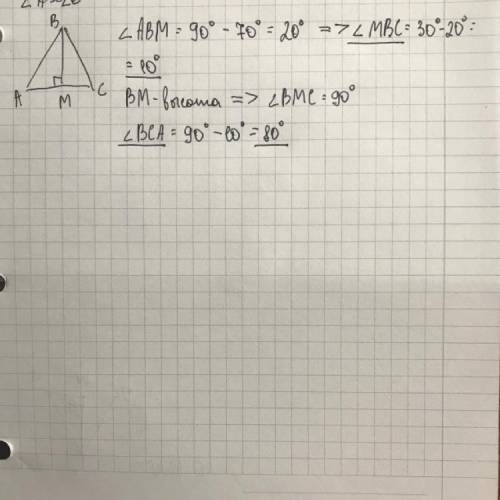 B
A
M
C
∠ABM = 90° - 70° = 20° => ∠MBC = 30° - 20° =
= 10°
BM - высота => ∠BMC = 90°
∠BCA = 90° - 10° = 80°